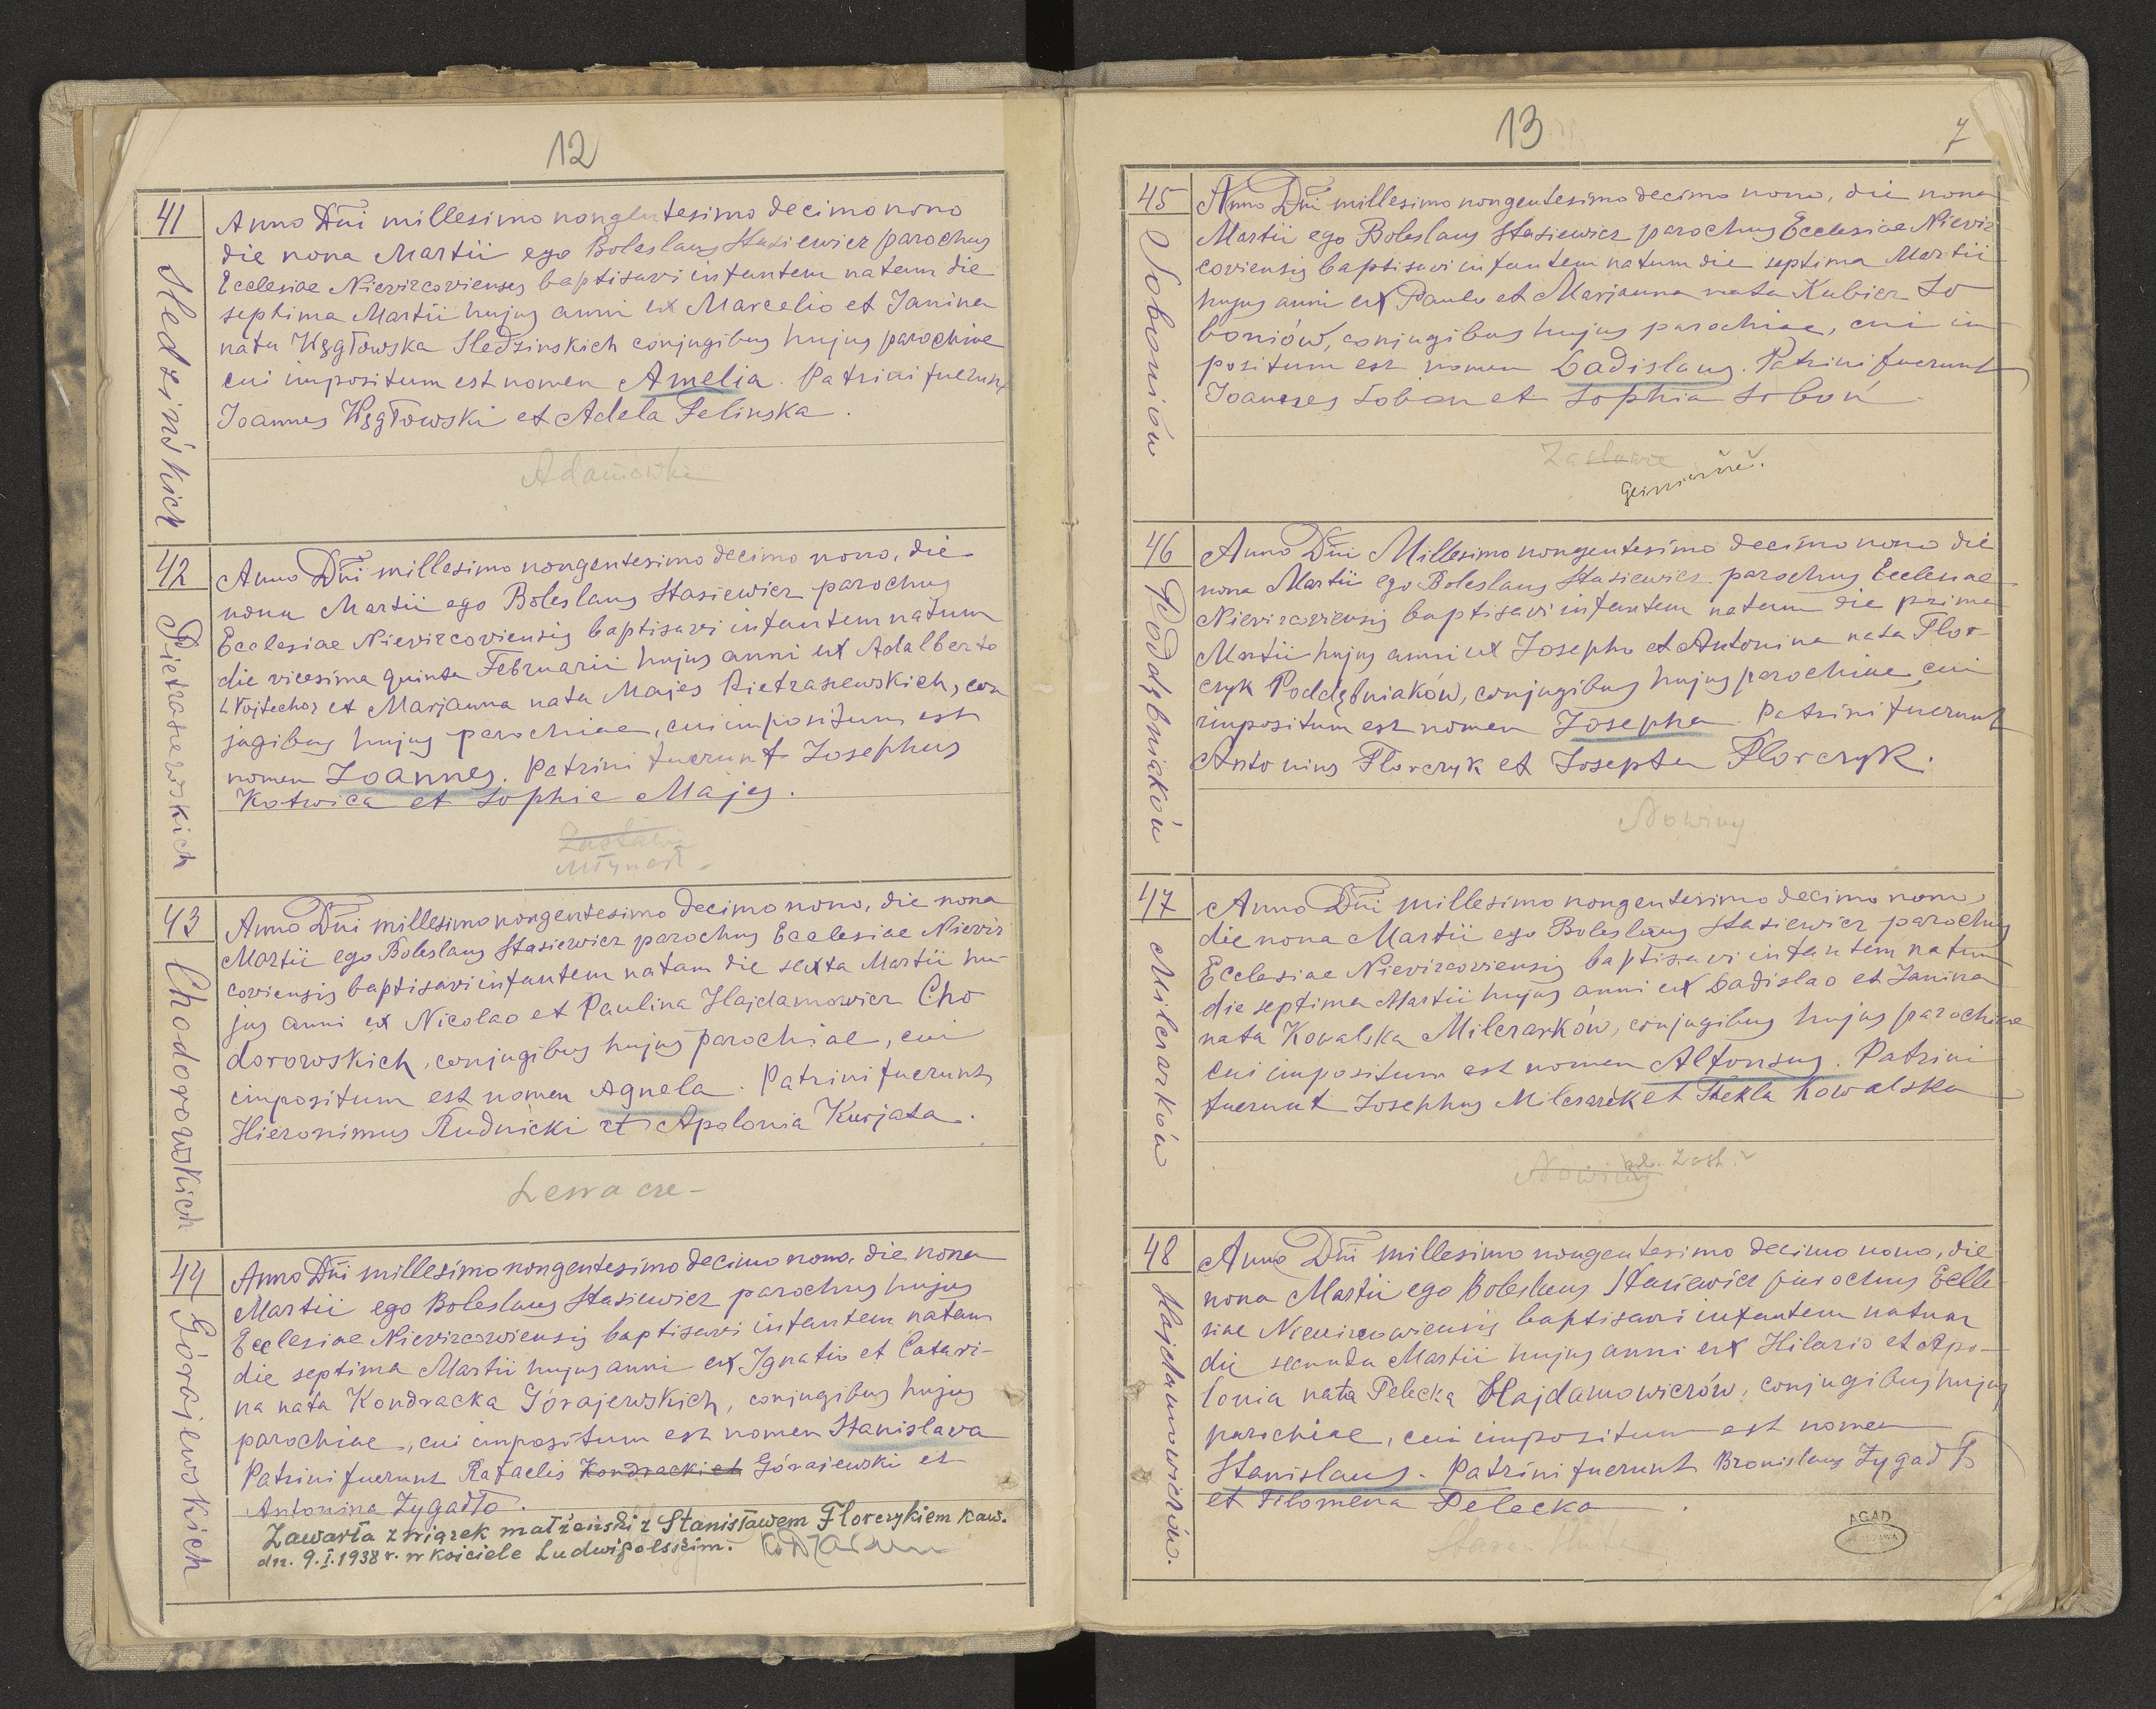 12
41
Sledzińskich
Anno Dñi millesimo nongentesimo decimo nono
die nona Martii ego Boleslaus Stasiewicz parochus
Ecclesiae Nievircoviensis baptisavi infantem natam die
septima Martii hujus anni ex Marcelio et Janina
nata Węgłowska Sledzinskich conjugibus hujus parochiae
cui impositum est nomen Amelia. Patrini fuerunt
Joannes Węgłowski et Adela Felinska.
Adamówka
42
Pietraszewskich
Anno Dñi millesimo nongentesimo decimo nono, die
nona Martii ego Boleslaus Stasiewicz parochus
Ecclesiae Nievircoviensis baptisavi infantem natum
die vicesima quinta Februarii hujus anni ex Adalberto
et Marjanna nata Majes Pietraszewskich, con
jugibus hujus parochiae, cui impositum est
nomen Joannes. Patrini fuerunt Josephus
Kotwica et Sophia Majes.
43
Chodorowskich
Anno Dñi millesimo nongentesimo decimo nono, die nona
Martii ego Boleslaus Stasiewicz parochus Ecclesiae Nievir
coviensis baptisavi infantem natam die sexta Martii hu-
jus anni ex Nicolao et Paulina Hajdamowicz Cho
dorowskich, conjugibus hujus parochiae, cui
impositum est nomen Agnela. Patrini fuerunt
Hieronimus Rudnicki et Apolonia Kurjata.
44
Górajewskich
Anno Dñi millesimo nongentesimo decimo nono, die nona
Martii ego Boleslaus Stasiewicz parochus hujus
Ecclesiae Nievircowiensis baptisavi infantem natam
die septima Martii hujus anni ex Ignatio et Catari-
na nata Kondracka Górajewskich, conjugibus hujus
parochiae, cui impositum est nomen Stanislava
Patrini fuerunt Rafaelis Kondracki et Górajewski et
Antonina Zygadło.
Zawarła związek małżeński z Stanisławem Florczykiem kaw.
dn. 9.I.1938 r. w kościele Ludwipolskim.
13
7
45
Soboniów
Anno Dñi millesimo nongentesimo decimo nono, die nona
Martii ego Boleslaus Stasiewicz parochus Ecclesiae Nievir
coviensis baptisavi infantem natum die septima Martii
hujus anni ex Paulo et Marjanna nata Kubicz So
boniów, conjugibus hujus parochiae, cui im
positum est nomen Ladislaus. Patrini fuerunt
Joannes Soboń et Sophia Soboń
46
Poddębniaków
Anno Dñi Millesimo nongentesimo decimo nono die
nona Martii ego Boleslaus Stasiewicz parochus Ecclesiae
Nievircoviensis baptisavi infantem natam die prima
Martii hujus anni ex Josepho et Antonina nata Flor-
czyk Poddębniaków, conjugibus hujus parochiae, cui
impositum est nomen Josepha. Patrini fuerunt
Antonius Florczyk et Josepha Florczyk.
Nowiny
47
Milczarków
Anno Dñi millesimo nongentesimo decimo nono
die nona Martii ego Boleslaus Stasiewicz parochus
Ecclesiae Nievircoviensis baptisavi infantem natum
die septima Martii hujus anni ex Ladislao et Janina
nata Kowalska Milczarków, conjugibus hujus parochiae
cui impositum est nomen Alfonsus. Patrini
fuerunt Josephus Milczarek et Thekla Kowalska
Nowiny
48
Hajdamowiczów.
Anno Dñi millesimo nongentesimo decimo nono, die
nona Martii ego Boleslaus Stasiewicz parochus Eccle
siae Nievircowiensis baptisavi infantem natum
die secunda Martii hujus anni ex Hilario et Apo-
lonia nata Pelecka Hajdamowiczów, conjugibus hujus
parochiae, cui impositum est nomen
Stanislaus. Patrini fuerunt Bronislaus Zygadło
et Filomena Pelecka.
AGAD
WARSZAWA